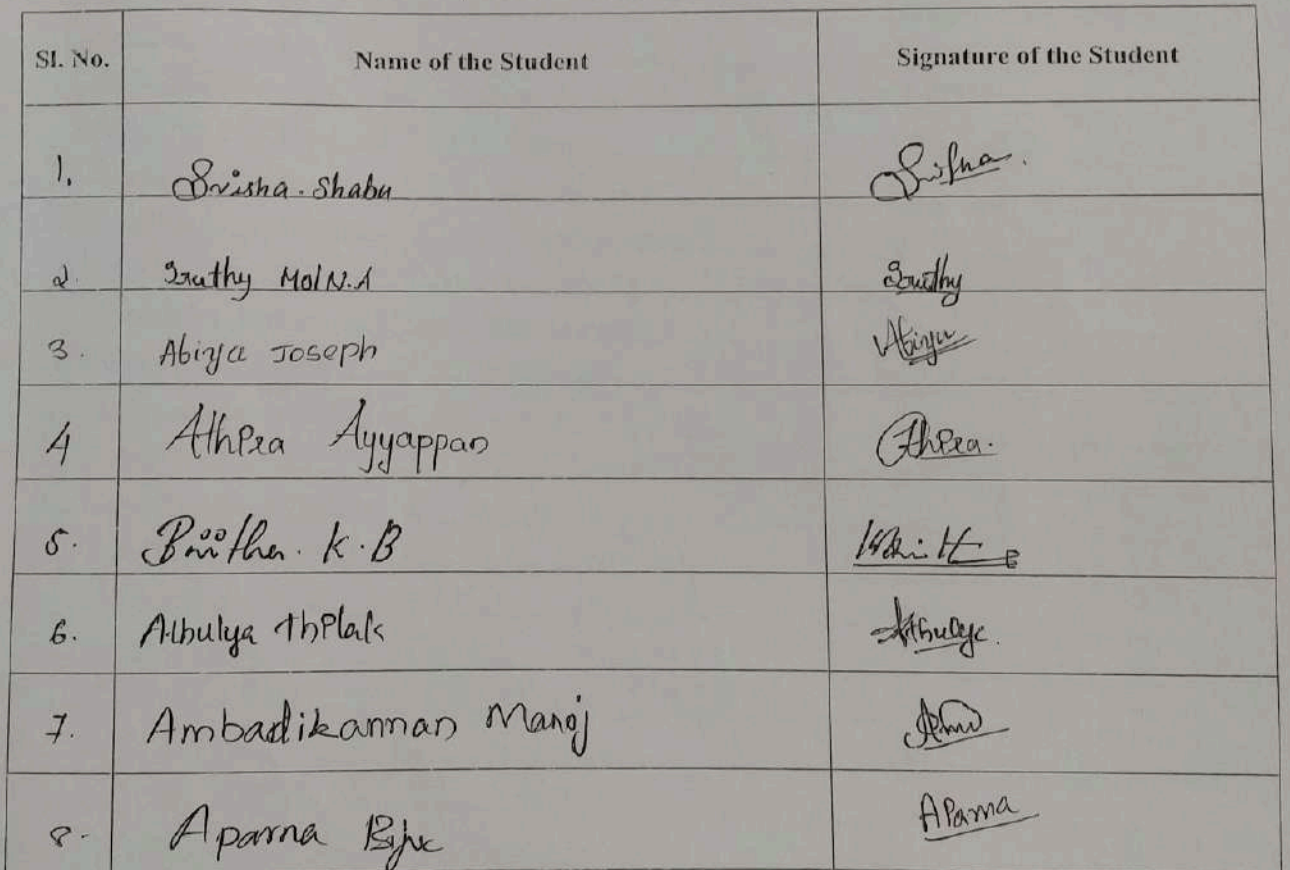 Sl. No. Name of the Student Signature of the Student
1. Srisha. Shabu Srisha.
2. Sruthy Mol N.A Sruthy
3. Abiya Joseph Abiya
4 Athira Ayyappan Athira.
5. K.B
6. Athulya Athulya.
7. Ambadikannan Manoj
8. Aparna Biju Aparna